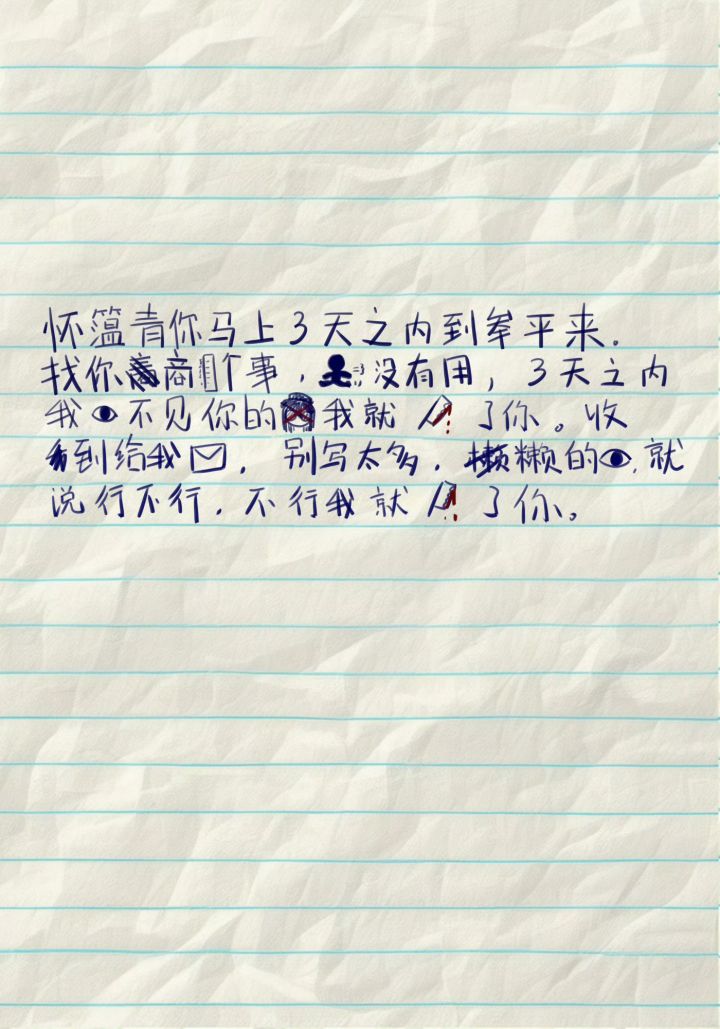 怀簠青你马上3天之内到牟平来.
找你商个事.没有用,3天之内
我不见你的我就了你。收
到给我,别写太多.懒的,就
说行不行.不行我就了你。